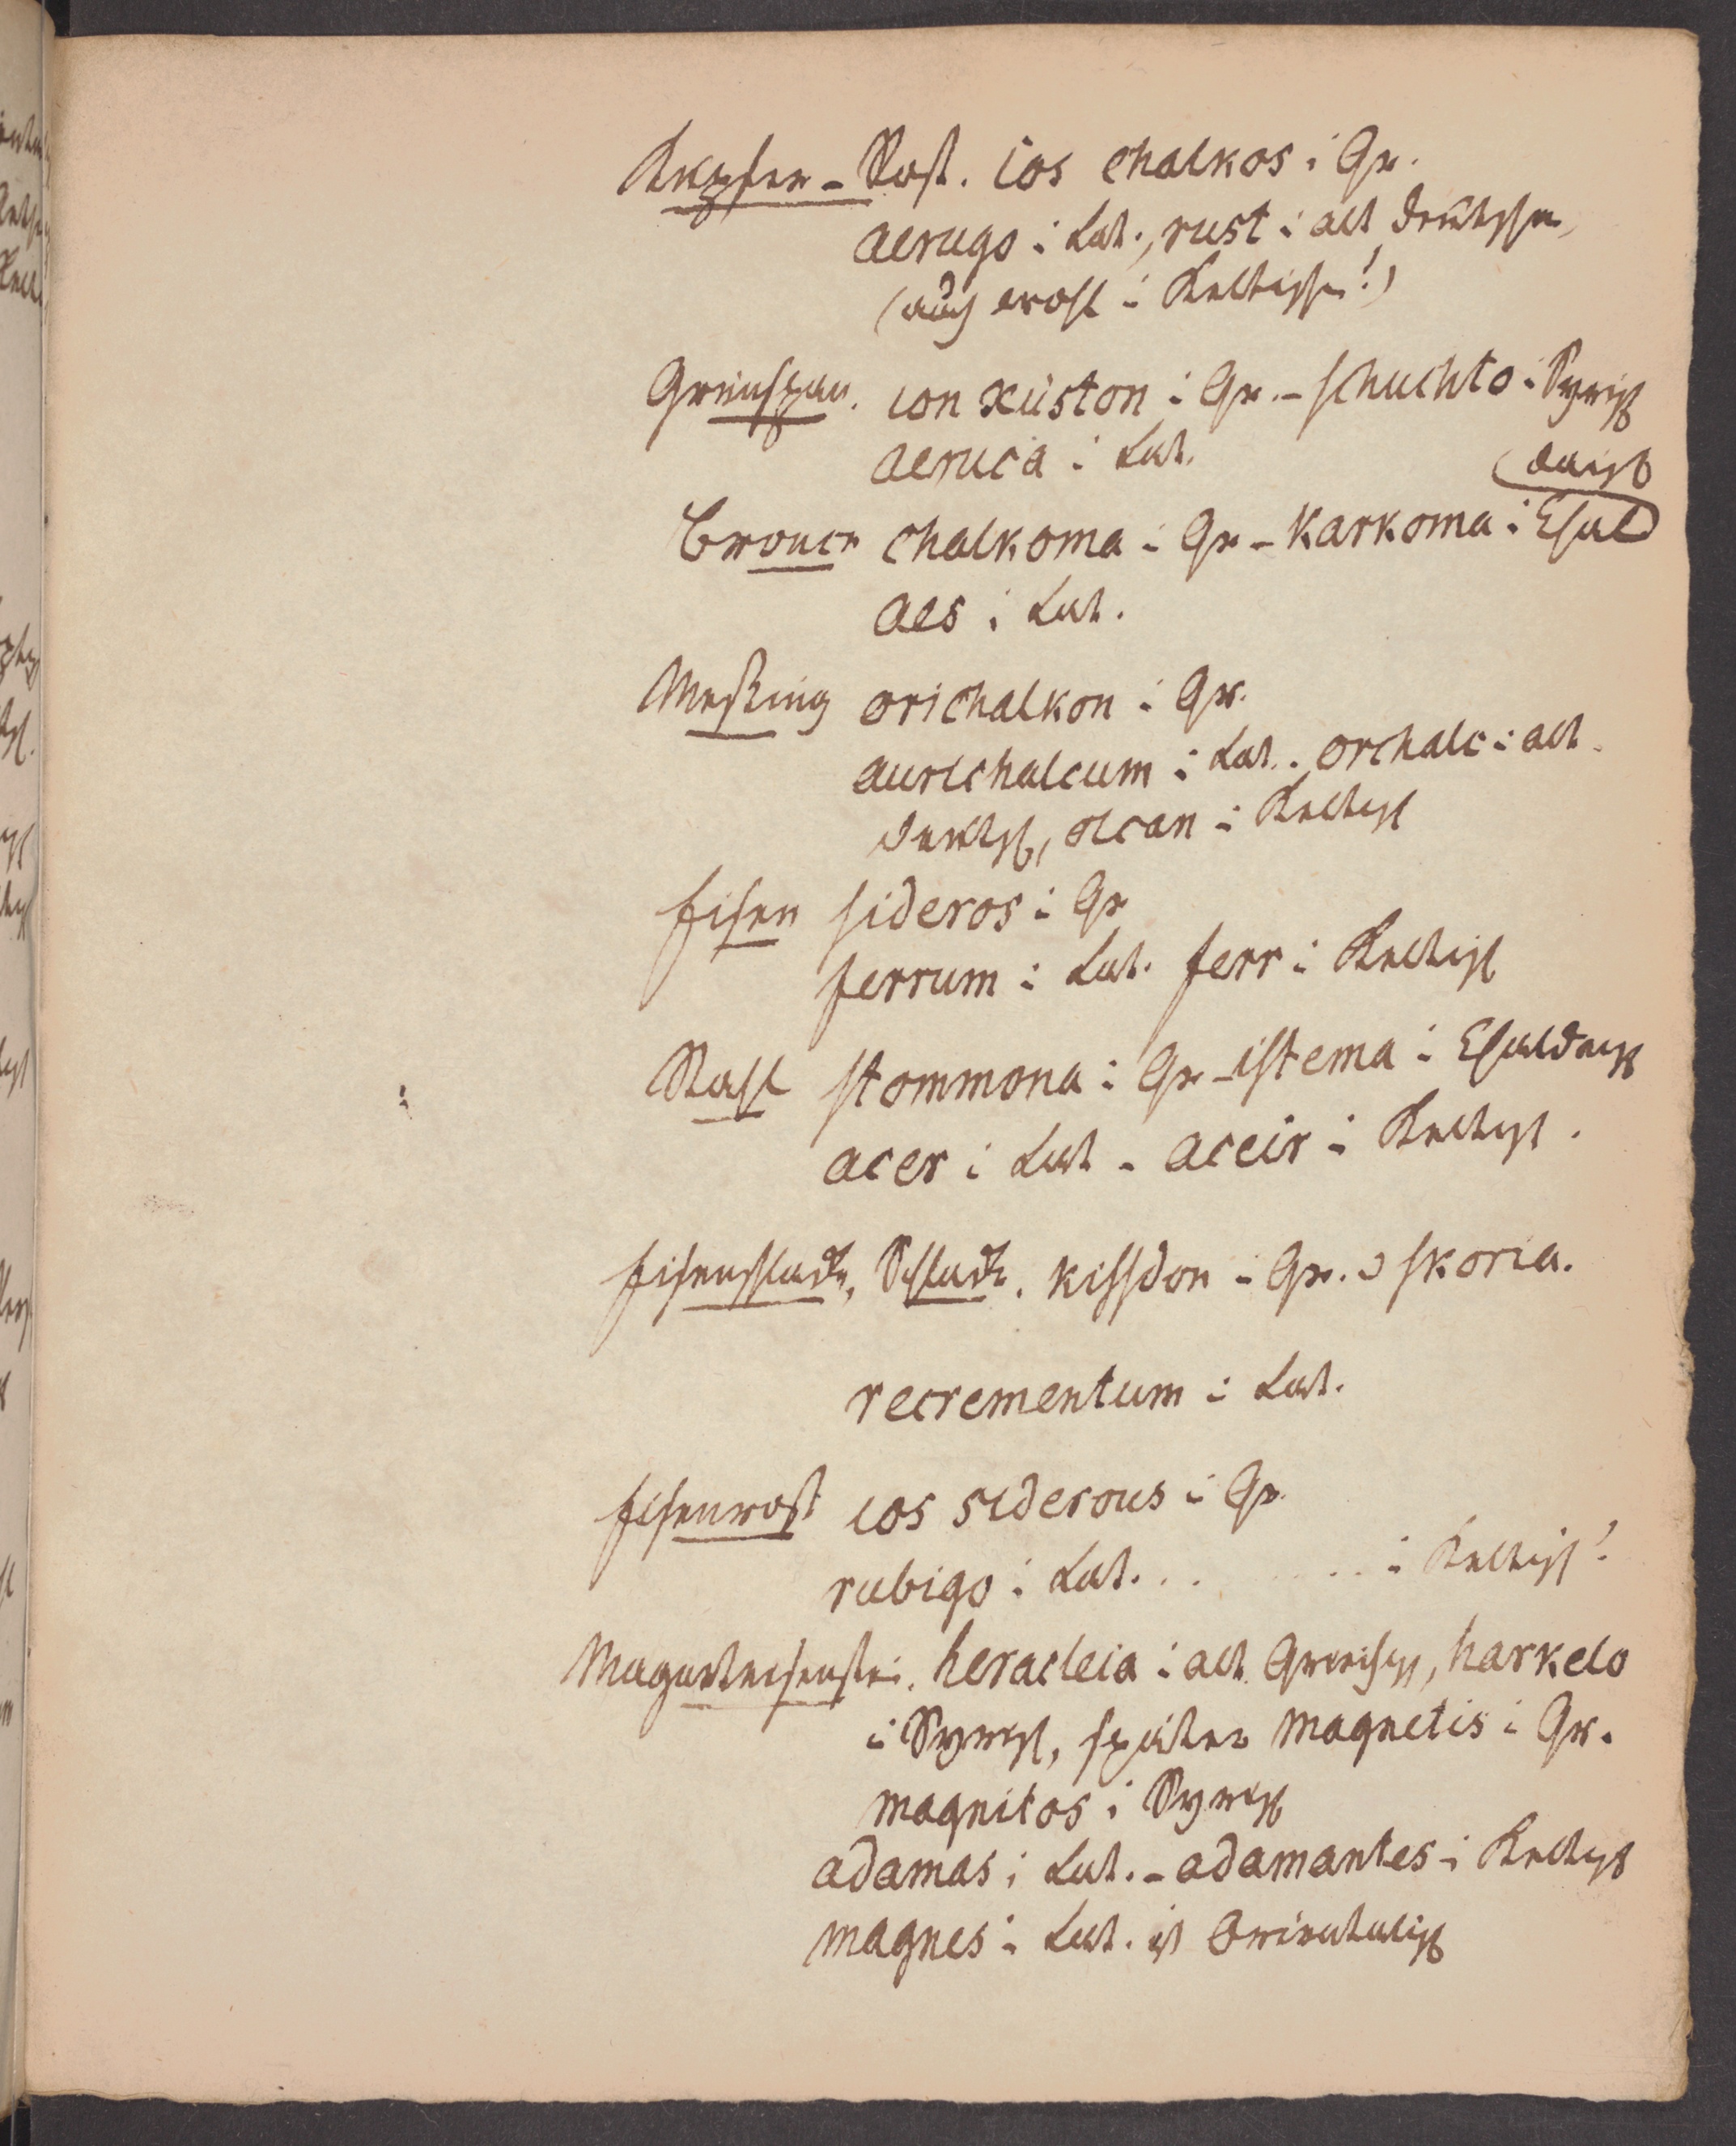 Kupfer-Rost. ios chalkos i Gr.
aerugo i Lat., rust i alt deutschen,
(auch erost i Keltischen!)
Grünspan. ion xüston i Gr. - schuchto i Syrisch
aeruca i Lat.
Bronce chalkoma i Gr - karkoma i Chal
däisch
aes i Lat.
Meßing orichalkon i Gr.
aurichalcum i Lat. orchalc i alt
deutsch, olcan i Keltisch
Eisen sideros i Gr
ferrum i Lat. ferr i Keltisch
Stahl stommona i Gr - istema i Chaldäisch
acer i Lat - aceir i Keltisch.
Eisenschlacke, Schlacke. kissdon i Gr. u skoria.
recrementum i Lat.
Eisenrost ios siderous i Gr.
rubigo i Lat. . . . . . i Keltisch!
Magneteisenstein. heracleia i alt Griechisch, harkelo
i Syrisch, später magnetis i Gr.
magnitos i Syrisch
adamas i Lat. - adamantes i Keltisch
magnes i Lat. ist Orientalisch